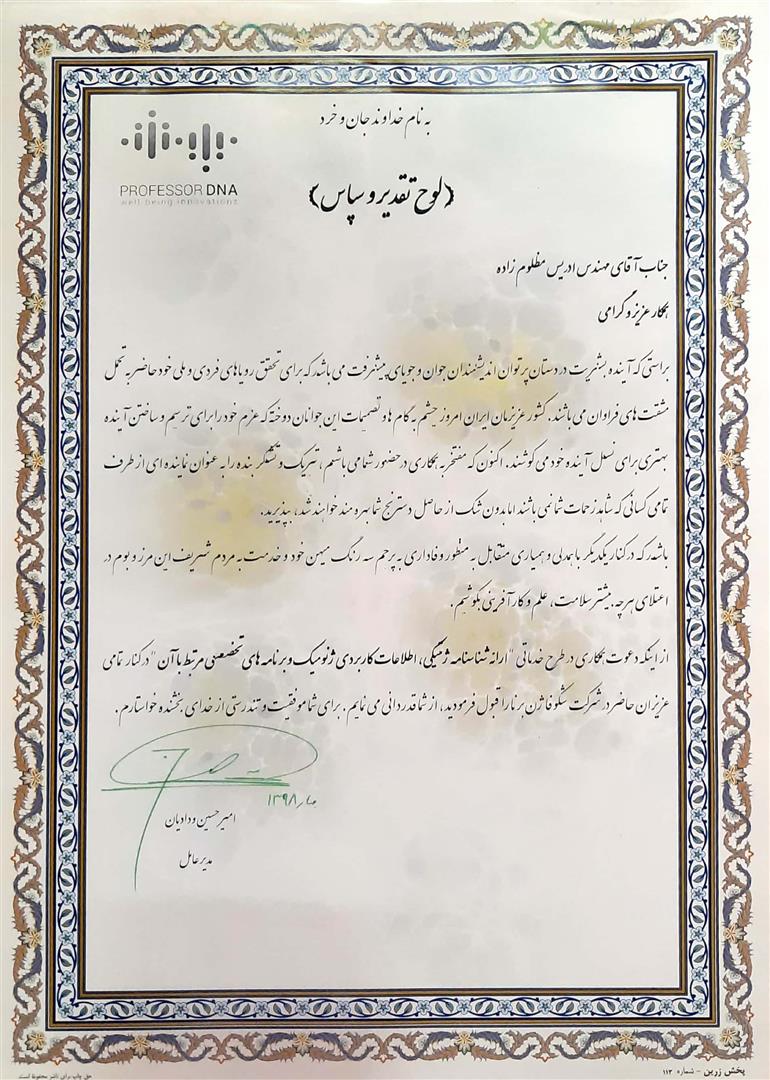 به نام خداوند جان و خرد
PROFESSOR DNA
well being innovations
(لوح تقدیر و سپاس)
جناب آقای مهندس ادریس مظلوم زاده
همکار عزیز و گرامی
براستی که آینده بشریت در دستان پرتوان اندیشمندان جوان و جویای پیشرفت می باشد که برای تحقق رویاهای فردی و ملی خود حاضر به تحمل
مشقت های فراوان می باشند. کشور عزیزمان ایران امروز چشم به گام ها و تصمیمات این جوانان دوخته که عزم خود را برای ترسیم و ساختن آینده
بهتری برای نسل آینده خود می کوشند. اکنون که مفتخر به همکاری در حضور شما می باشم، تبریک و تشکر بنده را به عنوان نماینده ای از طرف
تمامی کسانی که شاهد زحمات شما نمی باشند اما بدون شک از حاصل دسترنج شما بهره مند خواهند شد، بپذیرید.
باشد که در کنار یکدیگر با همدلی و همیاری متقابل به منظور وفاداری به پرچم سه رنگ میهن خود و خدمت به مردم شریف این مرز و بوم در
اعتلای هرچه بیشتر سلامت، علم و کارآفرینی بکوشیم.
از اینکه دعوت همکاری در طرح خدماتی "ارائه شناسنامه ژنتیکی، اطلاعات کاربردی ژنومیک و برنامه های تخصصی مرتبط با آن" در کنار تمامی
عزیزان حاضر در شرکت شکوفا ژن برنا را قبول فرمودید، از شما قدردانی می نمایم. برای شما موفقیت و تندرستی از خدای بخشنده خواستارم.
بهار ۱۳۹۸
امیرحسین ودادیان
مدیرعامل
پخش زرین - شماره ۱۱۳
حق چاپ برای ناشر محفوظ است.